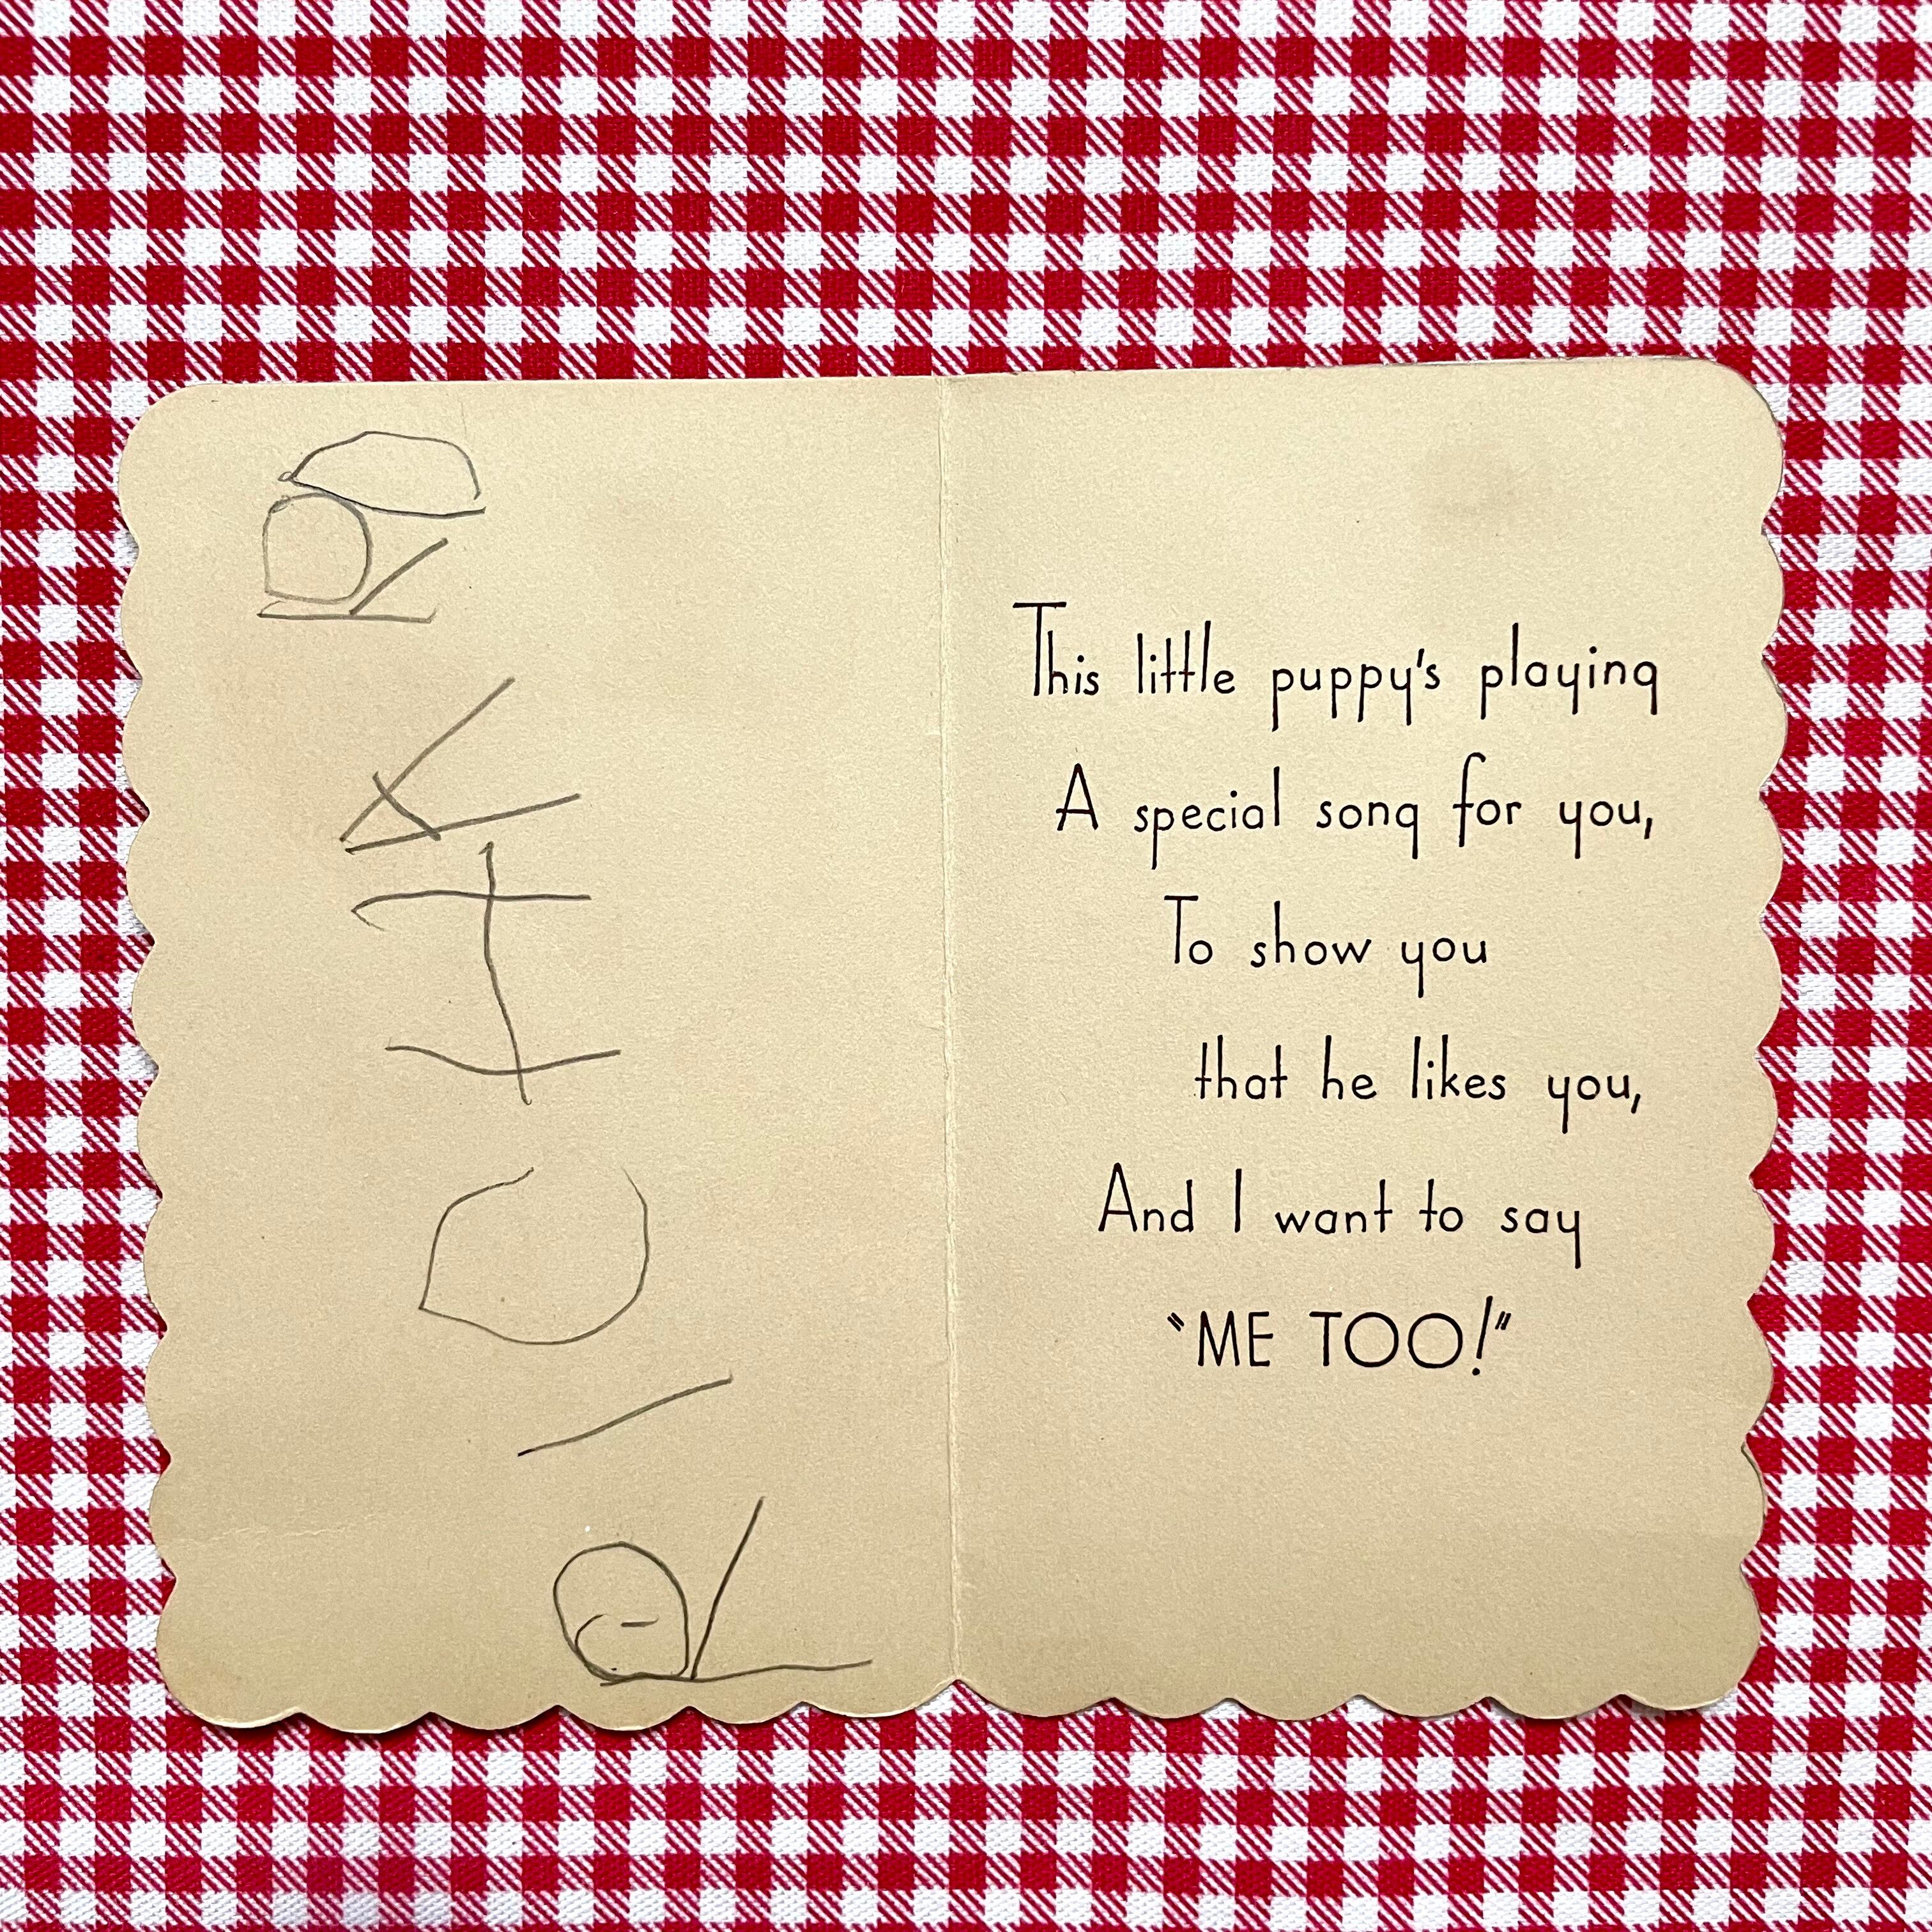 RICHARD
This little puppy's playing
A special song for you,
To show you
that he likes you,
And I want to say
"ME TOO!"